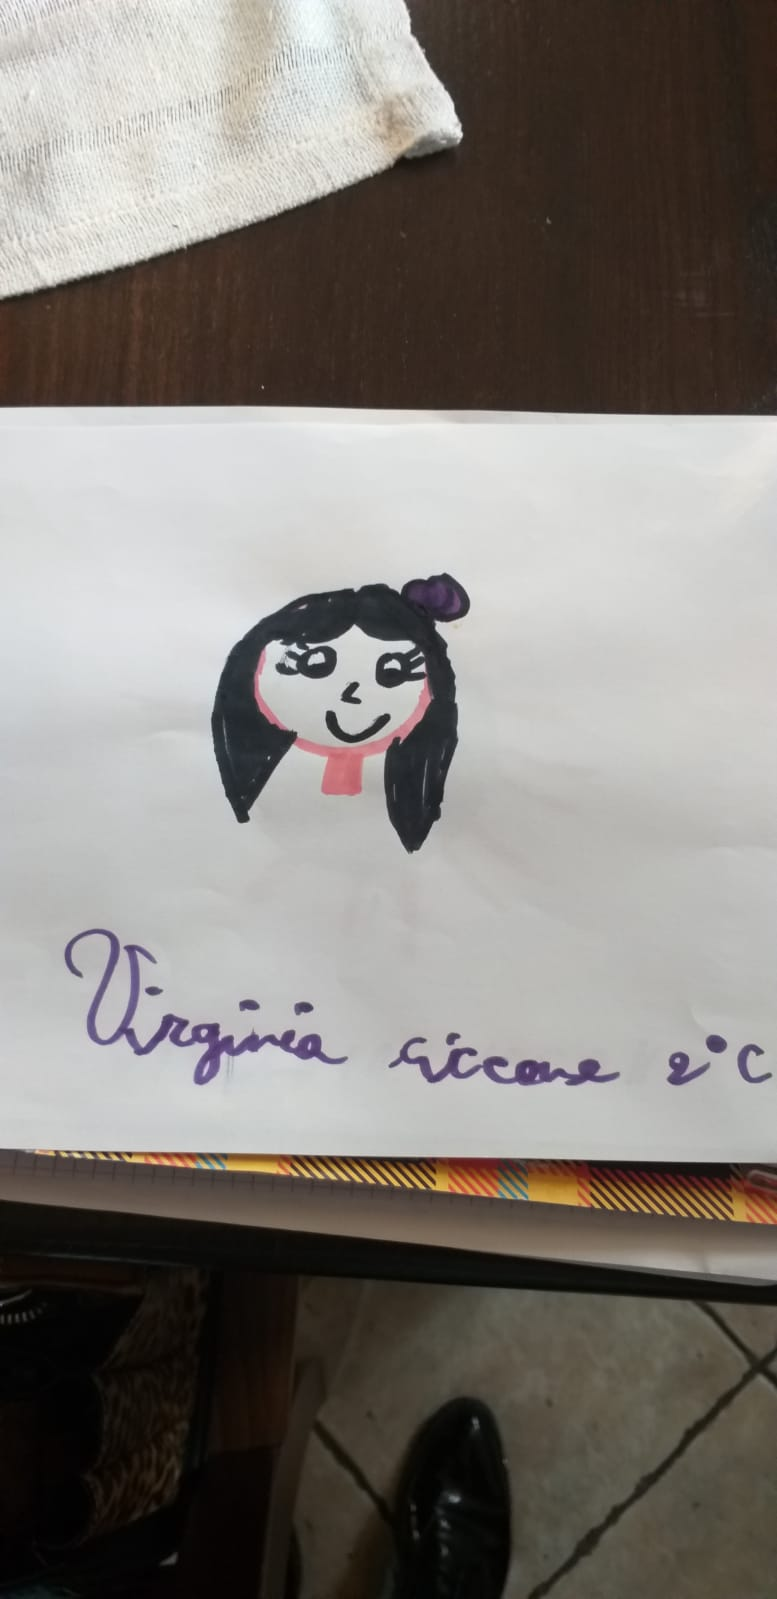 Virginia Ciccone 2°C